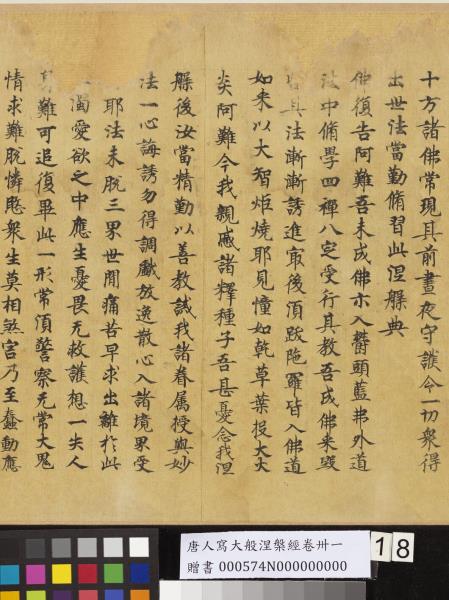 十方諸佛常現其前晝夜守護令一切衆得
出世法當勤脩習此涅槃典
佛復告阿難吾未成佛示入欝頭藍弗外道
法中脩學四禪八定受行其教吾成佛来毀
其法漸漸誘進冣後湏跋陁羅皆入佛道
如来以大智炬燒耶見憧如乾草葉投大火
炎阿難今我親慼諸釋種子吾甚憂念我涅
槃後汝當精勤以善教誡我諸眷属授與妙
法一心誨誘勿得調戲放逸散心入諸境界受
耶法未脫三界世間痛苦早求出離於此
濁愛欲之中應生憂畏无救護想一失人
難可追復畢此一形常湏警察无常大鬼
情求難脫憐愍衆生莫相煞害乃至蠢動應
唐人寫大般涅槃經卷卅一
贈書 000574N000000000
18